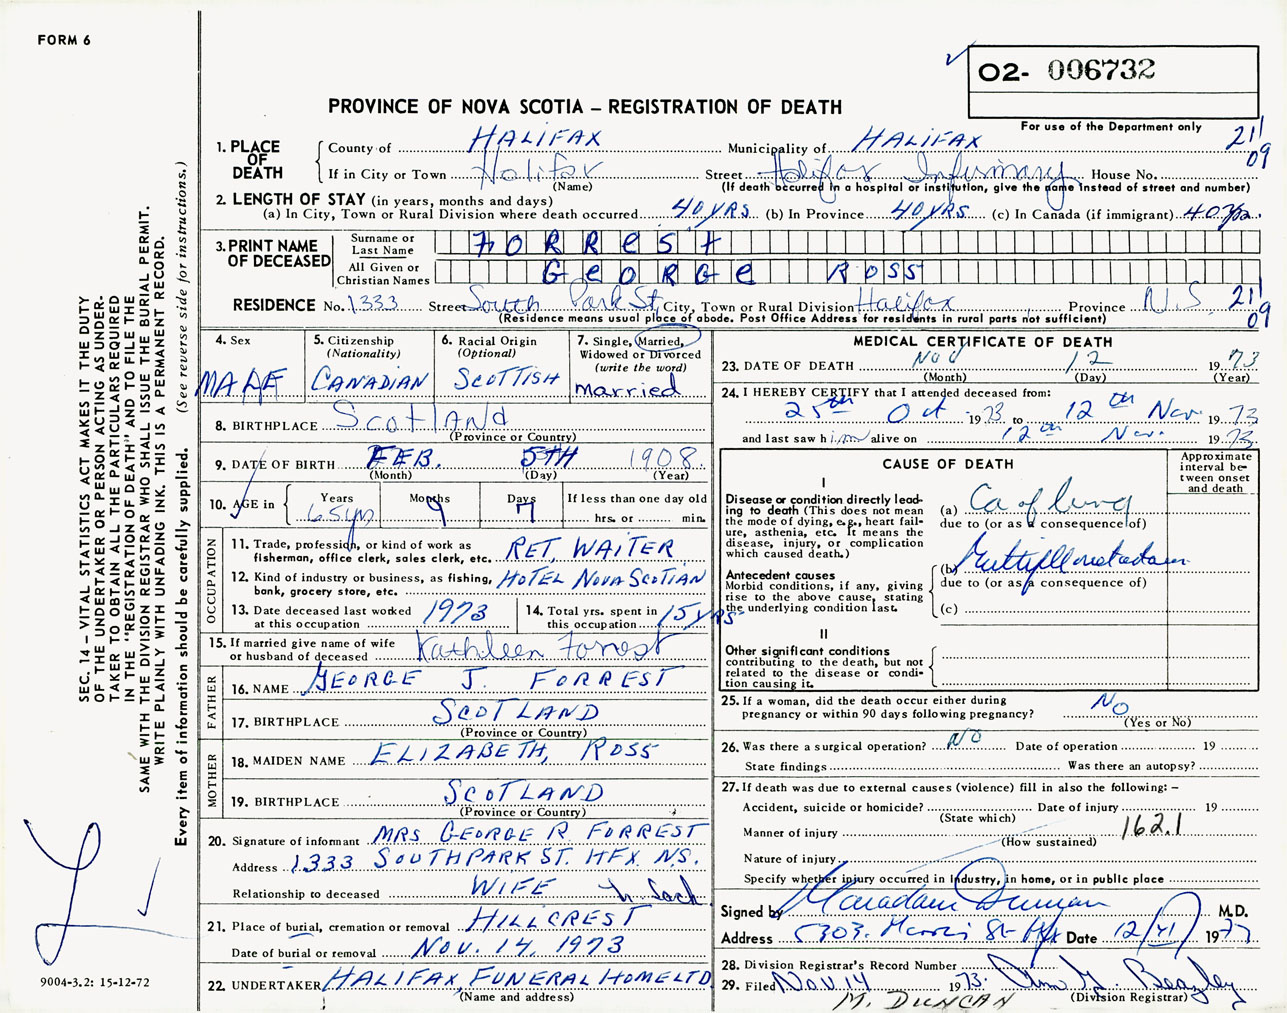 FORM 6
O2- 006732
PROVINCE OF NOVA SCOTIA – REGISTRATION OF DEATH
For use of the Department only
21
09
1. PLACE OF DEATH
County of HALIFAX Municipality of HALIFAX
If in City or Town Halifax Street Halifax Infirmary House No.
(Name) (If death occurred in a hospital or institution, give the name instead of street and number)
2. LENGTH OF STAY (in years, months and days)
(a) In City, Town or Rural Division where death occurred 40 YRS (b) In Province 40 YRS (c) In Canada (if immigrant) 40 yrs.
3. PRINT NAME OF DECEASED
Surname or Last Name FORREST
All Given or Christian Names GEORGE ROSS
RESIDENCE No. 1333 Street South Park St, City, Town or Rural Division Halifax Province N.S 21
09
(Residence means usual place of abode. Post Office Address for residents in rural parts not sufficient)
4. Sex
MALE
5. Citizenship
(Nationality)
CANADIAN
6. Racial Origin
(Optional)
SCOTTISH
7. Single, Married,
Widowed or Divorced
(write the word)
married
8. BIRTHPLACE Scotland
(Province or Country)
9. DATE OF BIRTH FEB. 5TH 1908.
(Month) (Day) (Year)
10. AGE in
Years Months Days If less than one day old
65 yrs 9 7 hrs. or min.
OCCUPATION
11. Trade, profession, or kind of work as
fisherman, office clerk, sales clerk, etc. RET, WAITER
12. Kind of industry or business, as fishing,
bank, grocery store, etc. HOTEL NOVA SCOTIAN
13. Date deceased last worked
at this occupation 1973
14. Total yrs. spent in
this occupation 15 yrs
15. If married give name of wife
or husband of deceased Kathleen Forrest
FATHER
16. NAME GEORGE J. FORREST
17. BIRTHPLACE SCOTLAND
(Province or Country)
MOTHER
18. MAIDEN NAME ELIZABETH, ROSS
19. BIRTHPLACE SCOTLAND
(Province or Country)
20. Signature of informant MRS GEORGE R. FORREST
Address 1333 SOUTHPARK ST. HFX N.S.
Relationship to deceased WIFE
21. Place of burial, cremation or removal HILLCREST
Date of burial or removal NOV. 14, 1973
22. UNDERTAKER HALIFAX FUNERAL HOME LTD
(Name and address)
MEDICAL CERTIFICATE OF DEATH
23. DATE OF DEATH Nov 12 1973
(Month) (Day) (Year)
24. I HEREBY CERTIFY that I attended deceased from:
25th Oct 1973 to 12th Nov. 1973
and last saw him alive on 12th Nov. 1973
CAUSE OF DEATH
Approximate interval between onset and death
I
Disease or condition directly leading to death (This does not mean the mode of dying, e.g., heart failure, asthenia, etc. It means the disease, injury, or complication which caused death.)
(a) Ca of lung
due to (or as a consequence of)
Antecedent causes
Morbid conditions, if any, giving rise to the above cause, stating the underlying condition last.
(b)
due to (or as a consequence of)
(c)
II
Other significant conditions
contributing to the death, but not related to the disease or condition causing it.
25. If a woman, did the death occur either during
pregnancy or within 90 days following pregnancy? No
(Yes or No)
26. Was there a surgical operation? NO Date of operation 19
State findings Was there an autopsy?
27. If death was due to external causes (violence) fill in also the following: –
Accident, suicide or homicide? Date of injury 19
(State which)
Manner of injury 162.1
(How sustained)
Nature of injury
Specify whether injury occurred in Industry, in home, or in public place
Signed by Duncan M.D.
Address 5303 Morris St Hfx Date 12/XI/ 1973
28. Division Registrar's Record Number
29. Filed Nov. 14 1973.
(Division Registrar)
M. DUNCAN
SEC. 14 – VITAL STATISTICS ACT MAKES IT THE DUTY
OF THE UNDERTAKER OR PERSON ACTING AS UNDER-
TAKER TO OBTAIN ALL THE PARTICULARS REQUIRED
IN THE "REGISTRATION OF DEATH" AND TO FILE THE
SAME WITH THE DIVISION REGISTRAR WHO SHALL ISSUE THE BURIAL PERMIT.
WRITE PLAINLY WITH UNFADING INK. THIS IS A PERMANENT RECORD.
Every item of information should be carefully supplied. (See reverse side for instructions.)
9004-3.2: 15-12-72